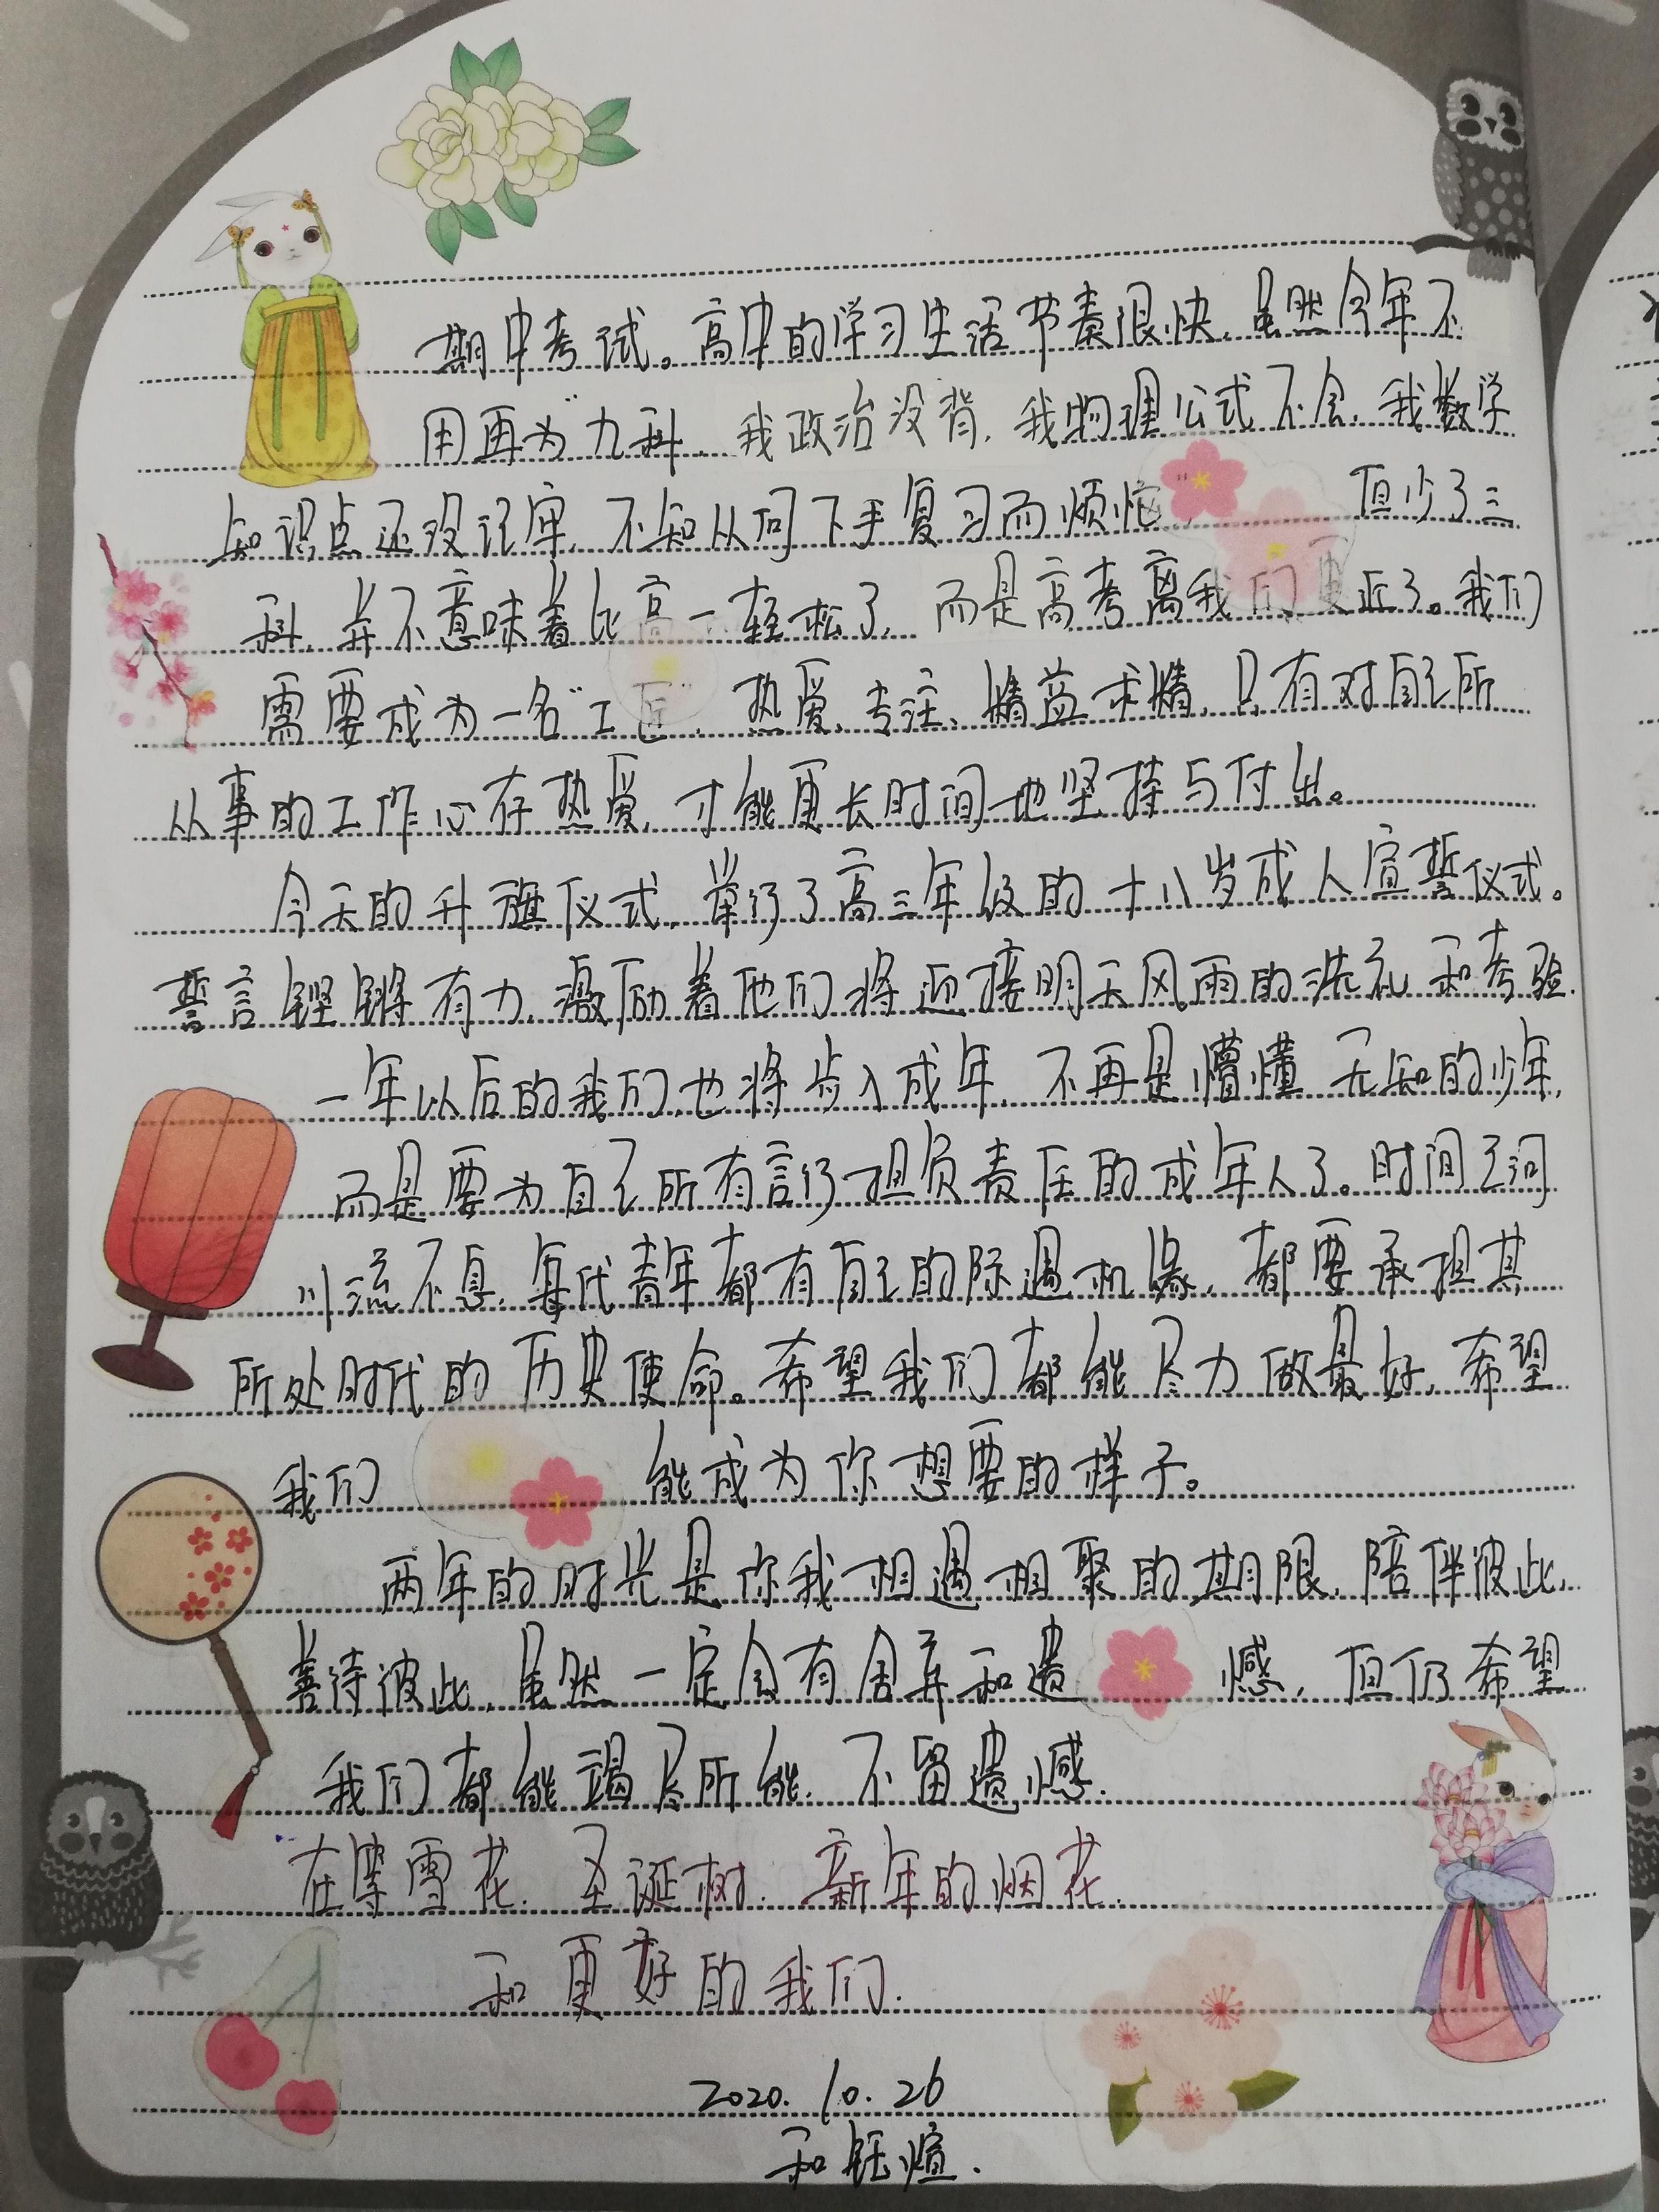 期中考试。高中的学习生活节奏很快,虽然今年不
用再为"九科,我政治没背,我物理公式不会,我数学
知识点还没记牢,不知从何下手复习而烦恼" 但少了三
科,并不意味着比高一轻松了,而是高考离我们更近了。我们
需要成为一名"工匠",热爱、专注、精益求精,只有对自己所
从事的工作心存热爱,才能更长时间地坚持与付出。
今天的升旗仪式,举行了高三年级的十八岁成人宣誓仪式。
誓言铿锵有力,激励着他们将迎接明天风雨的洗礼和考验.
一年以后的我们,也将步入成年,不再是懵懂无知的少年,
而是要为自己所有言行担负责任的成年人了。时间之河
川流不息,每代青年都有自己的际遇机缘,都要承担其
所处时代的历史使命。希望我们都能尽力做最好,希望
我们 能成为你想要的样子。
两年的时光是你我相遇相聚的期限,陪伴彼此,
善待彼此,虽然一定会有舍弃和遗 憾,但仍希望
我们都能竭尽所能,不留遗憾.
在等雪花.圣诞树.新年的烟花.
和更好的我们.
2020.10.26
和钰煊.